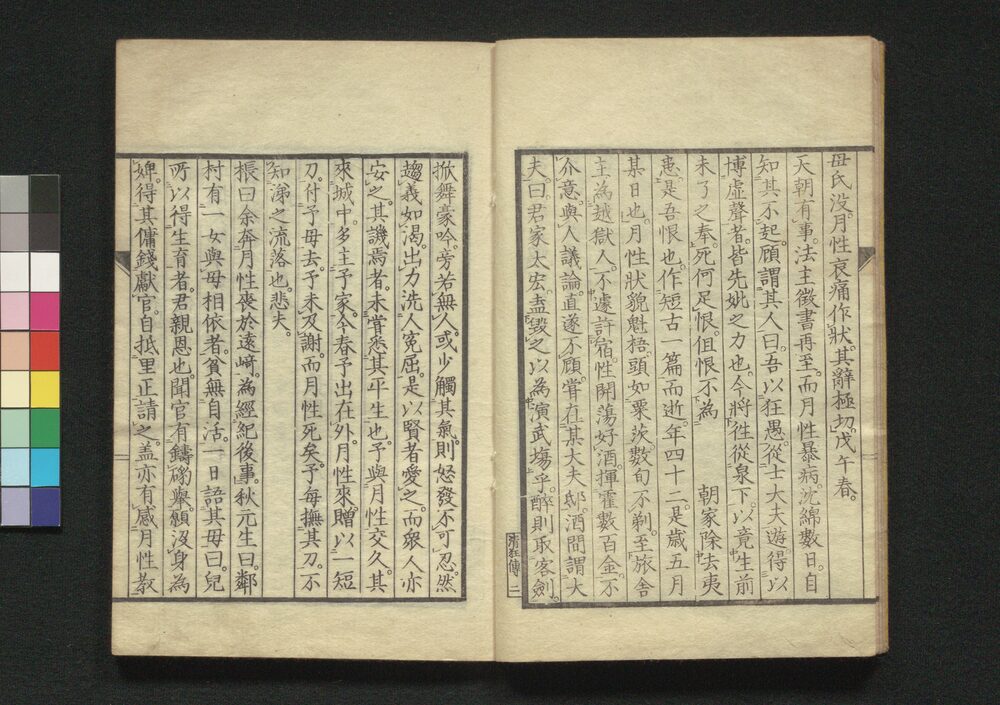 母氏没。月性哀痛作狀。其辭極切。戊午春。
天朝有事。法主徵書再至。而月性暴病。沈綿數日。自
知其不起。顧謂其人曰。吾以狂愚。從士大夫遊。得以
博虛聲者。皆先妣之力也。今將往從泉下。以竟生前
未了之奉。死何足恨。但恨不為 朝家除去夷
患。是吾恨也。作短古一篇而逝。年四十二。是歲五月
某日也。月性狀貌魁梧。頭如栗茨。數旬不剃。至旅舍
主為越獄人。不遽許宿。性開蕩好酒。揮霍數百金。不
介意。與人議論。直遂不顧。嘗在某大夫邸。酒間謂大
夫曰。君家太宏。盍毀之以為演武場乎。醉則取客劍。
清狂傳 二
掀舞豪吟。旁若無人。或少觸其氣。則怒發不可忍。然
趨義如渴。出力洗人冤屈。是以賢者愛之。而衆人亦
安之。其譏焉者。未嘗悉其平生也。予與月性交久。其
來城中。多主予家。今春予出在外。月性來贈以一短
刀。付予母去。予未及謝。而月性死矣。予每撫其刀。不
知涕之流落也。悲夫。
棖曰。余奔月性喪於遠崎。為經紀後事。秋元生曰。鄰
村有一女與母相依者。貧無自活。一日語其母曰。兒
所以得生育者。君親恩也。聞官有鑄礮擧。願沒身為
婢。得其傭錢獻官。自抵里正請之。盖亦有感月性教